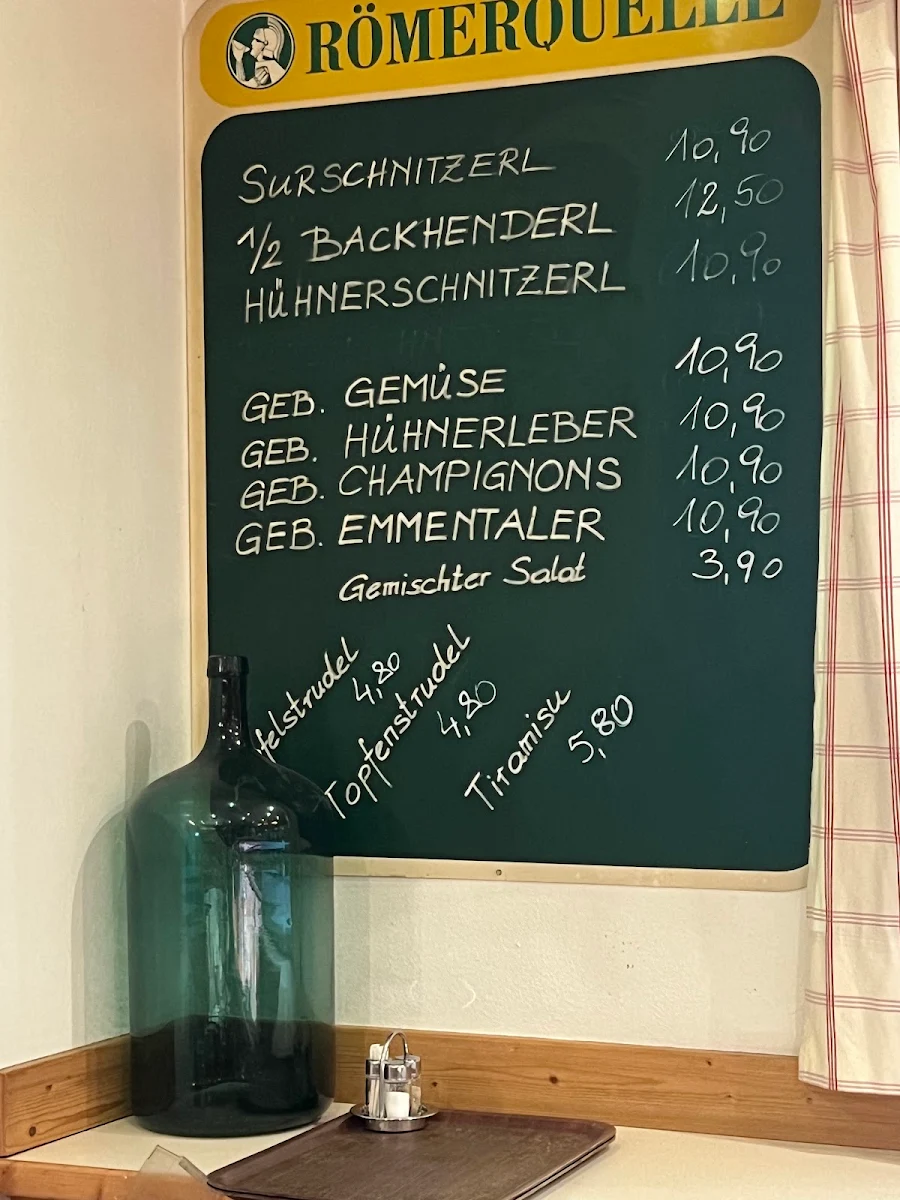 RÖMERQUELLE
SURSCHNITZERL 10,90
1/2 BACKHENDERL 12,50
HÜHNERSCHNITZERL 10,90
GEB. GEMÜSE 10,90
GEB. HÜHNERLEBER 10,90
GEB. CHAMPIGNONS 10,90
GEB. EMMENTALER 10,90
Gemischter Salat 3,90
felstrudel 4,80
Topfenstrudel 4,80
Tiramisu 5,80